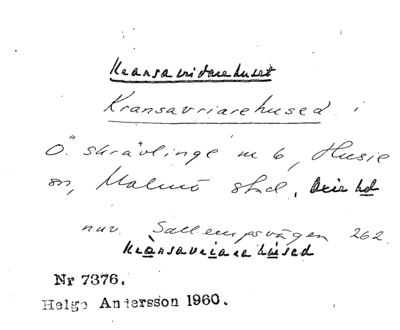 Kransavridarehuset
Kransavriarehused i
Ö. skrävlinge m 6, Husie
sn, Malmö stad. Oxie hd
nuv. Sallerupsvägen 262
Kránsavriarehúsed
Nr 7376.
Helge Andersson 1960.